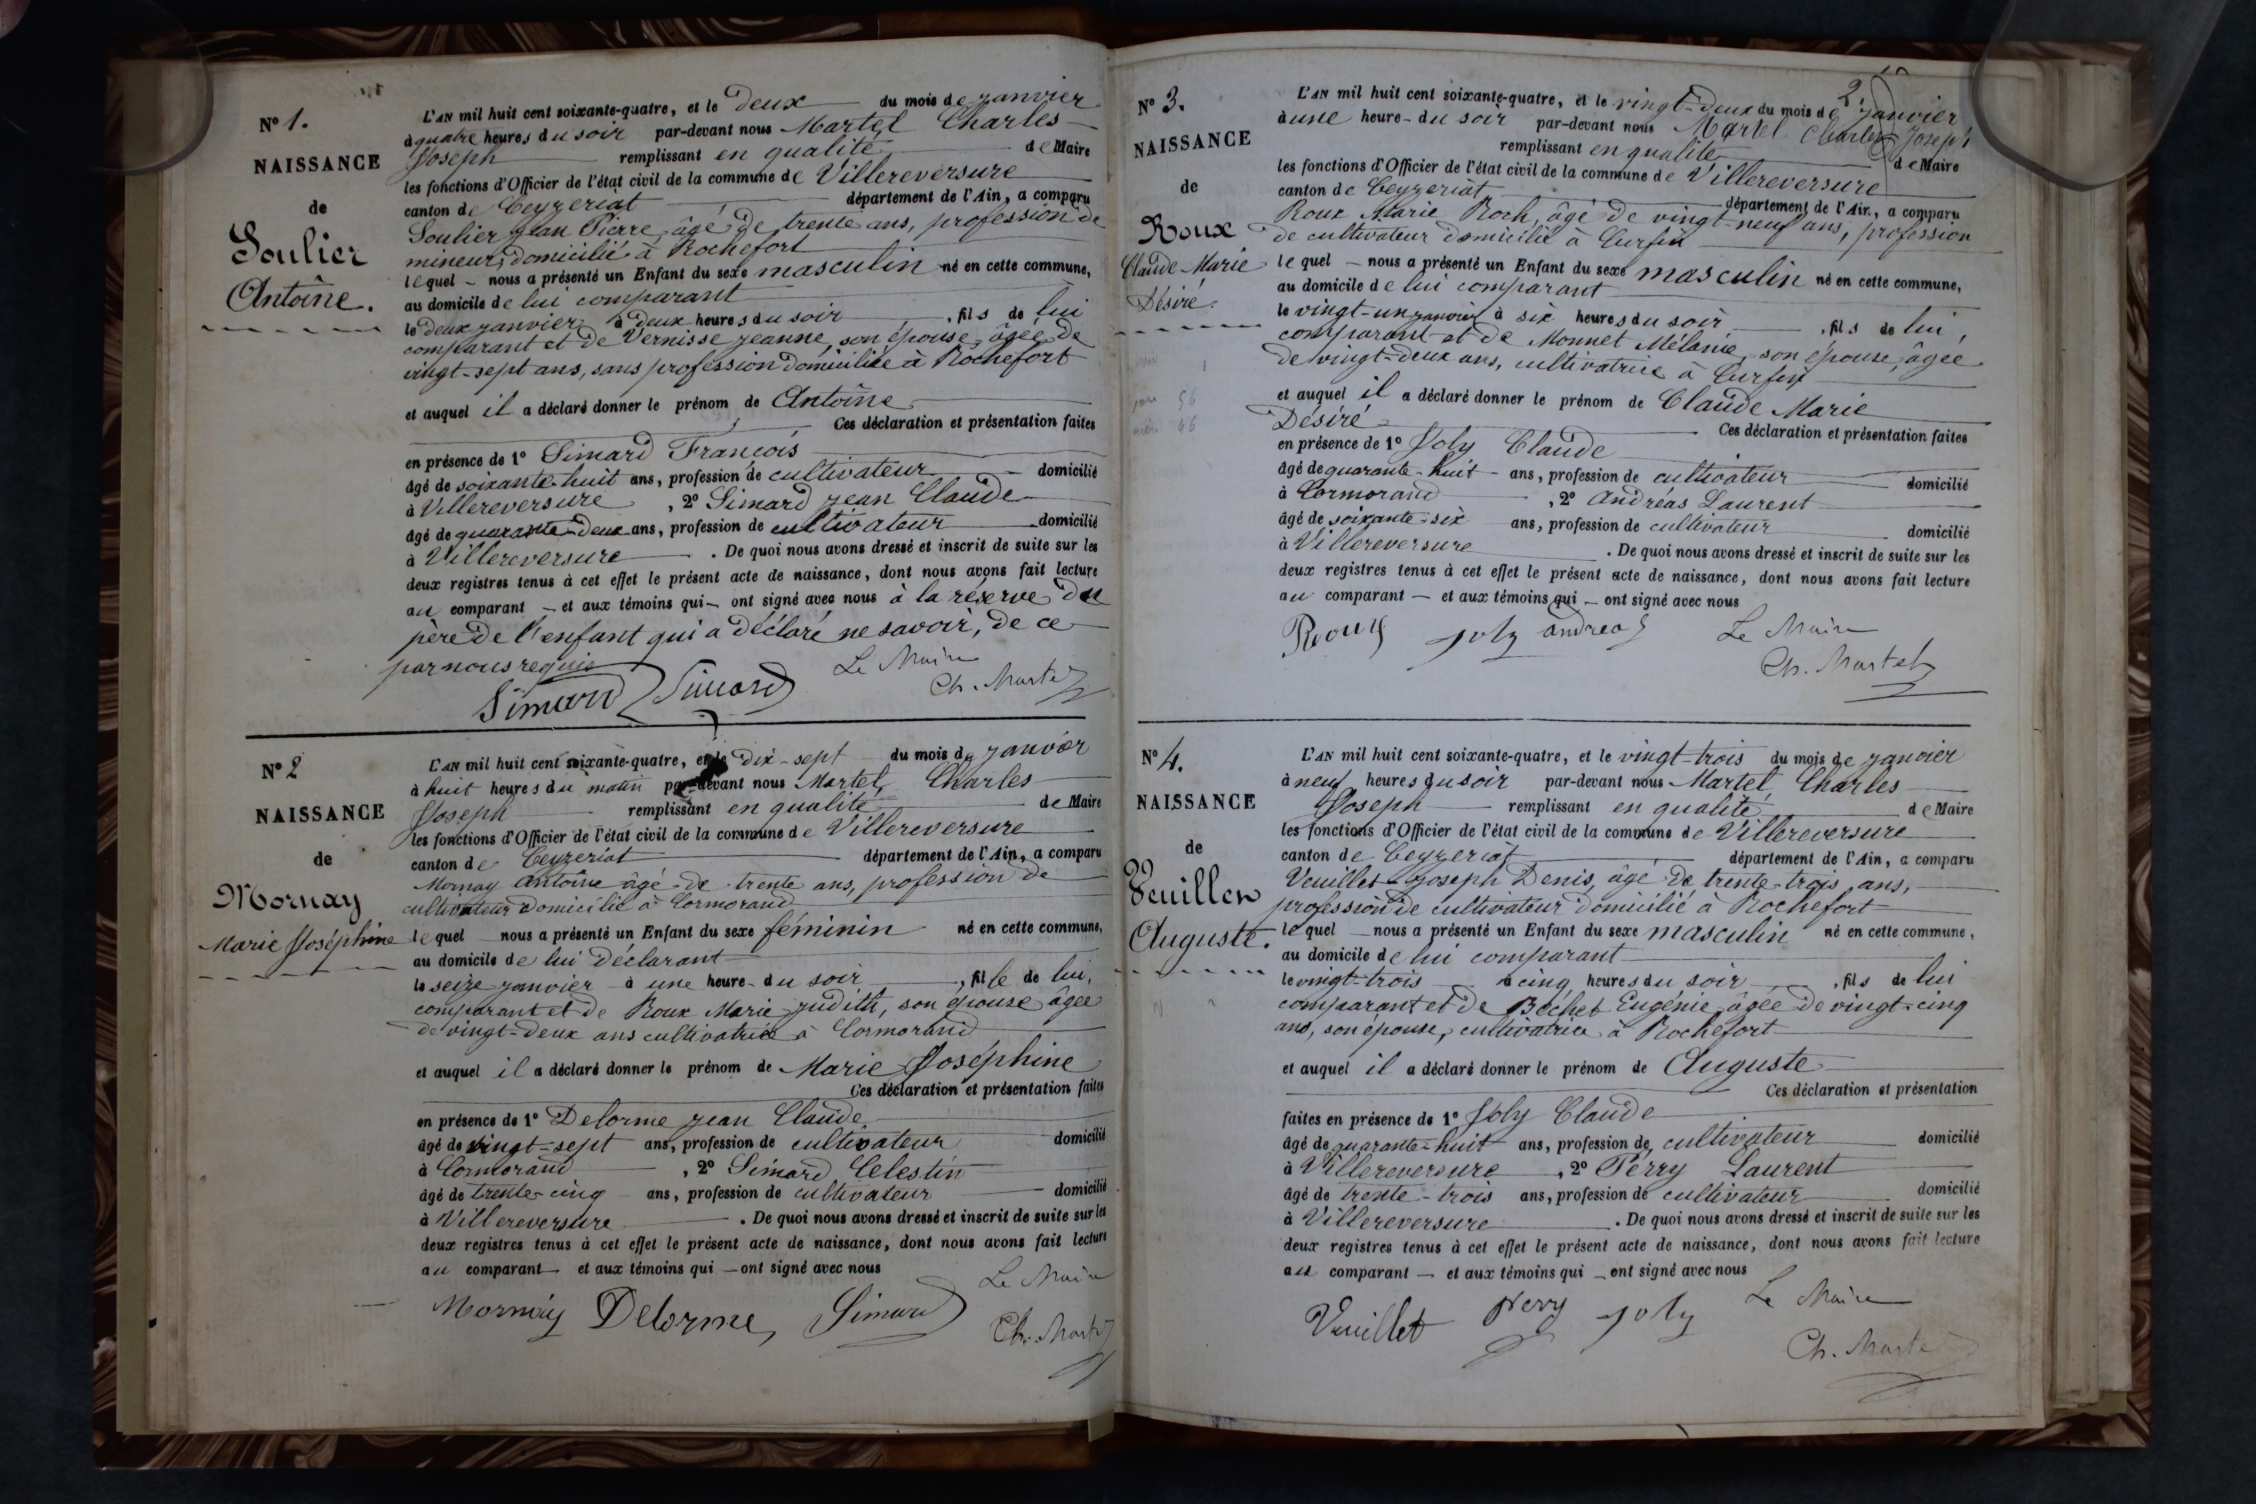 N° 1.
NAISSANCE
de
Soulier
Antoîne.
L'AN mil huit cent soixante-quatre, et le deux du mois de janvier
à quatre heures du soir par-devant nous Martel Charles
Joseph remplissant en qualité de Maire
les fonctions d'Officier de l'état civil de la commune de Villereversure
canton de Ceyzeriat département de l'Ain, a comparu
Soulier Jean Pierre, âgé de trente ans, profession de
mineur, domicilié à Rochefort
lequel nous a présenté un Enfant du sexe masculin né en cette commune,
au domicile de lui comparant
le deux janvier à deux heures du soir, fils de lui
comparant et de Vernisse jeanne, son épouse, âgée de
vingt-sept ans, sans profession domiciliée à Rochefort
et auquel il a déclaré donner le prénom de Antoîne
Ces déclaration et présentation faites
en présence de 1° Simard François
âgé de soixante-huit ans, profession de cultivateur domicilié
à Villereversure, 2° Simard jean Claude
âgé de quarante-deux ans, profession de cultivateur domicilié
à Villereversure. De quoi nous avons dressé et inscrit de suite sur les
deux registres tenus à cet effet le présent acte de naissance, dont nous avons fait lecture
au comparant et aux témoins qui ont signé avec nous à la réserve du
père de l'enfant qui a déclaré ne savoir, de ce
par nous requis
Simard Simard Le Maire
Ch. Martel
N° 2
NAISSANCE
de
Mornay
Marie Joséphine
L'AN mil huit cent soixante-quatre, et le dix-sept du mois de janvier
à huit heures du matin par-devant nous Martel, Charles
Joseph remplissant en qualité de Maire
les fonctions d'Officier de l'état civil de la commune de Villereversure
canton de Ceyzeriat département de l'Ain, a comparu
Mornay Antoîne âgé de trente ans, profession de
cultivateur domicilié à Cormorand
lequel nous a présenté un Enfant du sexe féminin né en cette commune,
au domicile de lui déclarant
le seize janvier à une heure du soir, fille de lui,
comparant et de Roux Marie judith, son épouse âgée
de vingt-deux ans cultivatrice à Cormorand
et auquel il a déclaré donner le prénom de Marie Joséphine
Ces déclaration et présentation faites
en présence de 1° Delorme jean Claude
âgé de vingt-sept ans, profession de cultivateur domicilié
à Cormorand, 2° Simard Celestin
âgé de trente-cinq ans, profession de cultivateur domicilié
à Villereversure. De quoi nous avons dressé et inscrit de suite sur les
deux registres tenus à cet effet le présent acte de naissance, dont nous avons fait lecture
au comparant et aux témoins qui ont signé avec nous
Le Maire
Mornay Delorme Simard
Ch. Martel
2.
N° 3.
NAISSANCE
de
Roux
Claude Marie
Désiré.
L'AN mil huit cent soixante-quatre, et le vingt-deux du mois de janvier
à une heure du soir par-devant nous Martel Charles Joseph
remplissant en qualité de Maire
les fonctions d'Officier de l'état civil de la commune de Villereversure
canton de Ceyzeriat département de l'Ain, a comparu
Roux Marie Roch, âgé de vingt-neuf ans, profession
de cultivateur domicilié à Curfin
lequel nous a présenté un Enfant du sexe masculin né en cette commune,
au domicile de lui comparant
le vingt-un janvier à six heures du soir, fils de lui,
comparant et de Monnet Mélanie, son épouse, âgée
de vingt-deux ans, cultivatrice à Curfin
et auquel il a déclaré donner le prénom de Claude Marie
Désiré Ces déclaration et présentation faites
en présence de 1° Joly Claude
âgé de quarante-huit ans, profession de cultivateur domicilié
à Cormorand, 2° Andréas Laurent
âgé de soixante-six ans, profession de cultivateur domicilié
à Villereversure. De quoi nous avons dressé et inscrit de suite sur les
deux registres tenus à cet effet le présent acte de naissance, dont nous avons fait lecture
au comparant et aux témoins qui ont signé avec nous
Roux joly andreas Le Maire
Ch. Martel
N° 4.
NAISSANCE
de
Veuillet
Auguste.
L'AN mil huit cent soixante-quatre, et le vingt-trois du mois de janvier
à neuf heures du soir par-devant nous Martel Charles
Joseph remplissant en qualité de Maire
les fonctions d'Officier de l'état civil de la commune de Villereversure
canton de Ceyzeriat département de l'Ain, a comparu
Veuillet Joseph Denis, âgé de trente-trois ans,
profession de cultivateur domicilié à Rochefort
lequel nous a présenté un Enfant du sexe masculin né en cette commune,
au domicile de lui comparant
le vingt-trois à cinq heures du soir, fils de lui
comparant et de Béchet Eugénie, âgée de vingt-cinq
ans, son épouse, cultivatrice à Rochefort
et auquel il a déclaré donner le prénom de Auguste
Ces déclaration et présentation
faites en présence de 1° Joly Claude
âgé de quarante-huit ans, profession de cultivateur domicilié
à Villereversure, 2° Perry Laurent
âgé de trente-trois ans, profession de cultivateur domicilié
à Villereversure. De quoi nous avons dressé et inscrit de suite sur les
deux registres tenus à cet effet le présent acte de naissance, dont nous avons fait lecture
au comparant et aux témoins qui ont signé avec nous
Veuillet Perry joly Le Maire
Ch. Martel